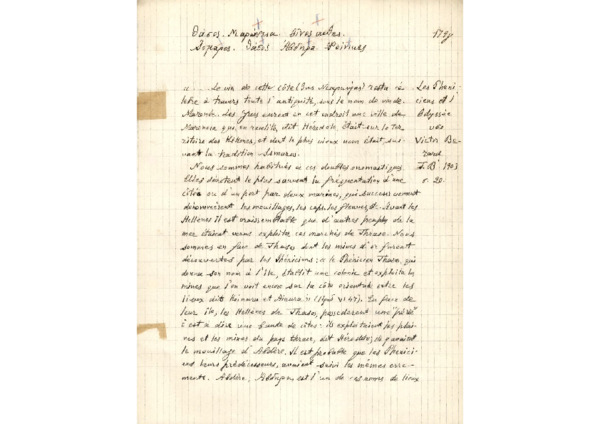 Θάσος. Μαρώνεια οἶνος
Ἄβδηρα Φοίνικες
« ... Le vin de cette côte resta cé-
lèbre à travers toute l'antiquité, sous le nom de vin de
Maronée. Les Grecs eurent en cet endroit une ville de
Maroneia qui, en réalité, dit Hérodote, était sur le ter-
ritoire des Kikones, et dont le plus vieux nom était, sui-
vant la tradition Ismaros.
Nous sommes habitués à ces doublets onomastiques
Elles dénotent le plus souvent la fréquentation d'une
côte ou d'un port par deux marines, qui successivement
dénommèrent les mouillages, les caps, les fleuves, etc. Avant les
Hellènes il est vraisemblable que d'autres peuples de la
mer étaient venus exploiter ces marchés de Thrace. Nous
sommes en face de Thasos dont les mines d'or furent
découvertes par les Phéniciens: « le Phénicien Thasos, qui
donna son nom à l'île, établit une colonie et exploita les
mines que l'on voit encore sur la côte orientale entre les
lieux dits Koinura et Ainura » En face de
leur île, les Hellènes de Thasos possédaient une
c'est à dire une bande de côtes: ils exploitaient les plai-
nes et les mines du pays thrace, dit Hérodote,
le mouillage d'Abdère. Il est probable que les Phénici-
ens leurs prédécesseurs, avaient suivi les mêmes erre-
ments. Abdère, est l'un de ces noms de lieux
Les Phéni-
ciens et l'
Odyssée
Victor Bé-
rard
1903
σ. 20.